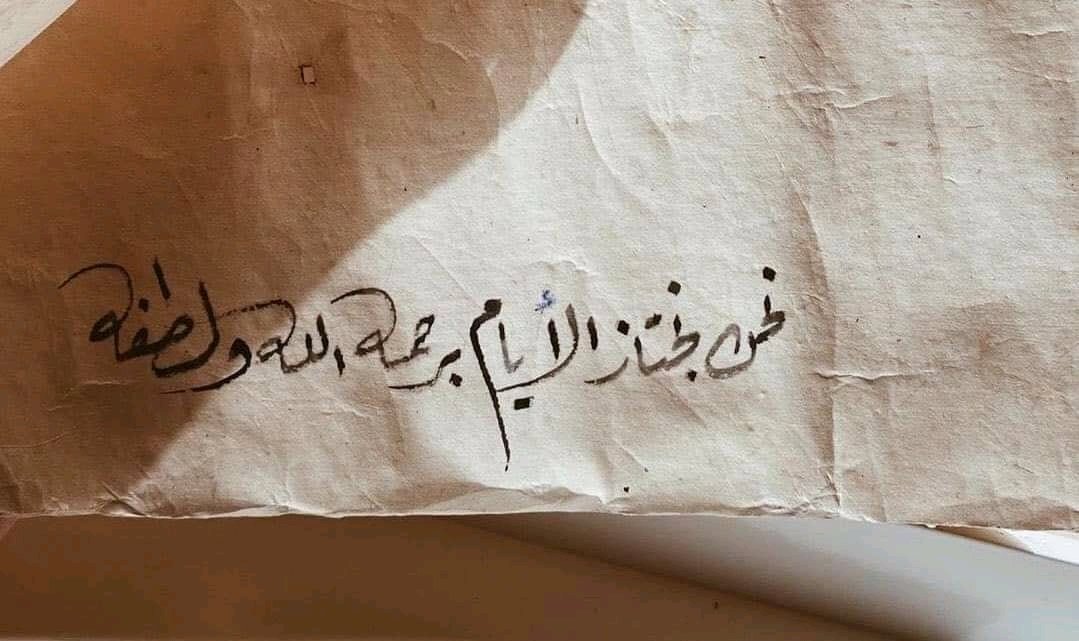 نحن نجتاز الأيام برحمه الله ولطفه